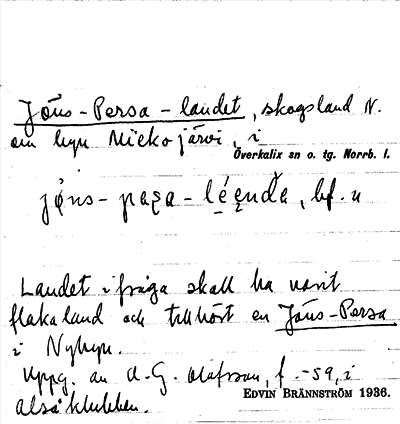 Jöns-Persa-landet, skogsland N.
om byn Miekojärvi, i
Överkalix sn o. tg. Norrb. l.
jøns-pæʂa-léɛnda, bf. n
Landet i fråga skall ha varit
flakaland och tillhört en Jöns-Persa
i Nybyn.
Uppg. av A. G. Olofsson, f. -59, i
EDVIN BRÄNNSTRÖM 1936.